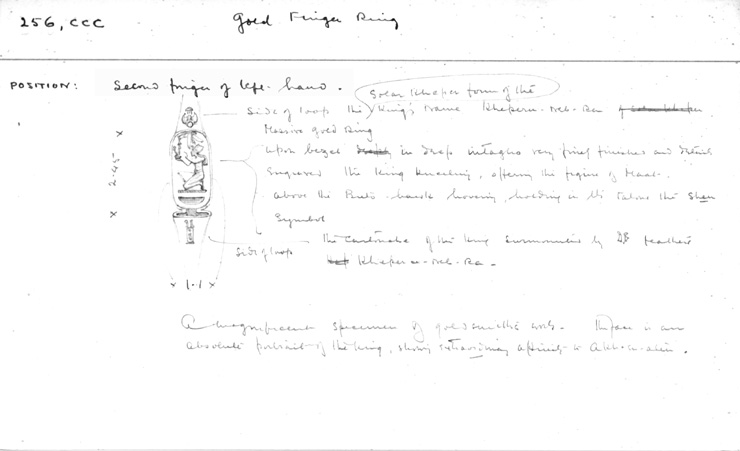 256, CCC Gold Finger Ring
POSITION: Second finger of left hand.
Solar Kheper form of the
Side of loop the King's name Kheperu-neb-Ra
Massive gold Ring
Upon bezel in deep intaglio very finely finished and detail
engraved the King kneeling, offering the figure of Maat.
above the hawk hovering, holding in its talons the Shen
Symbol
Side of loop the cartouche of the King surmounted by feathers
Kheperu-neb-Ra -
x 2.45 x
x 1.1 x
A magnificent specimen of goldsmith's work. The face is an
absolute portrait of the King, showing extraordinary affinity to Akh-en-aten.